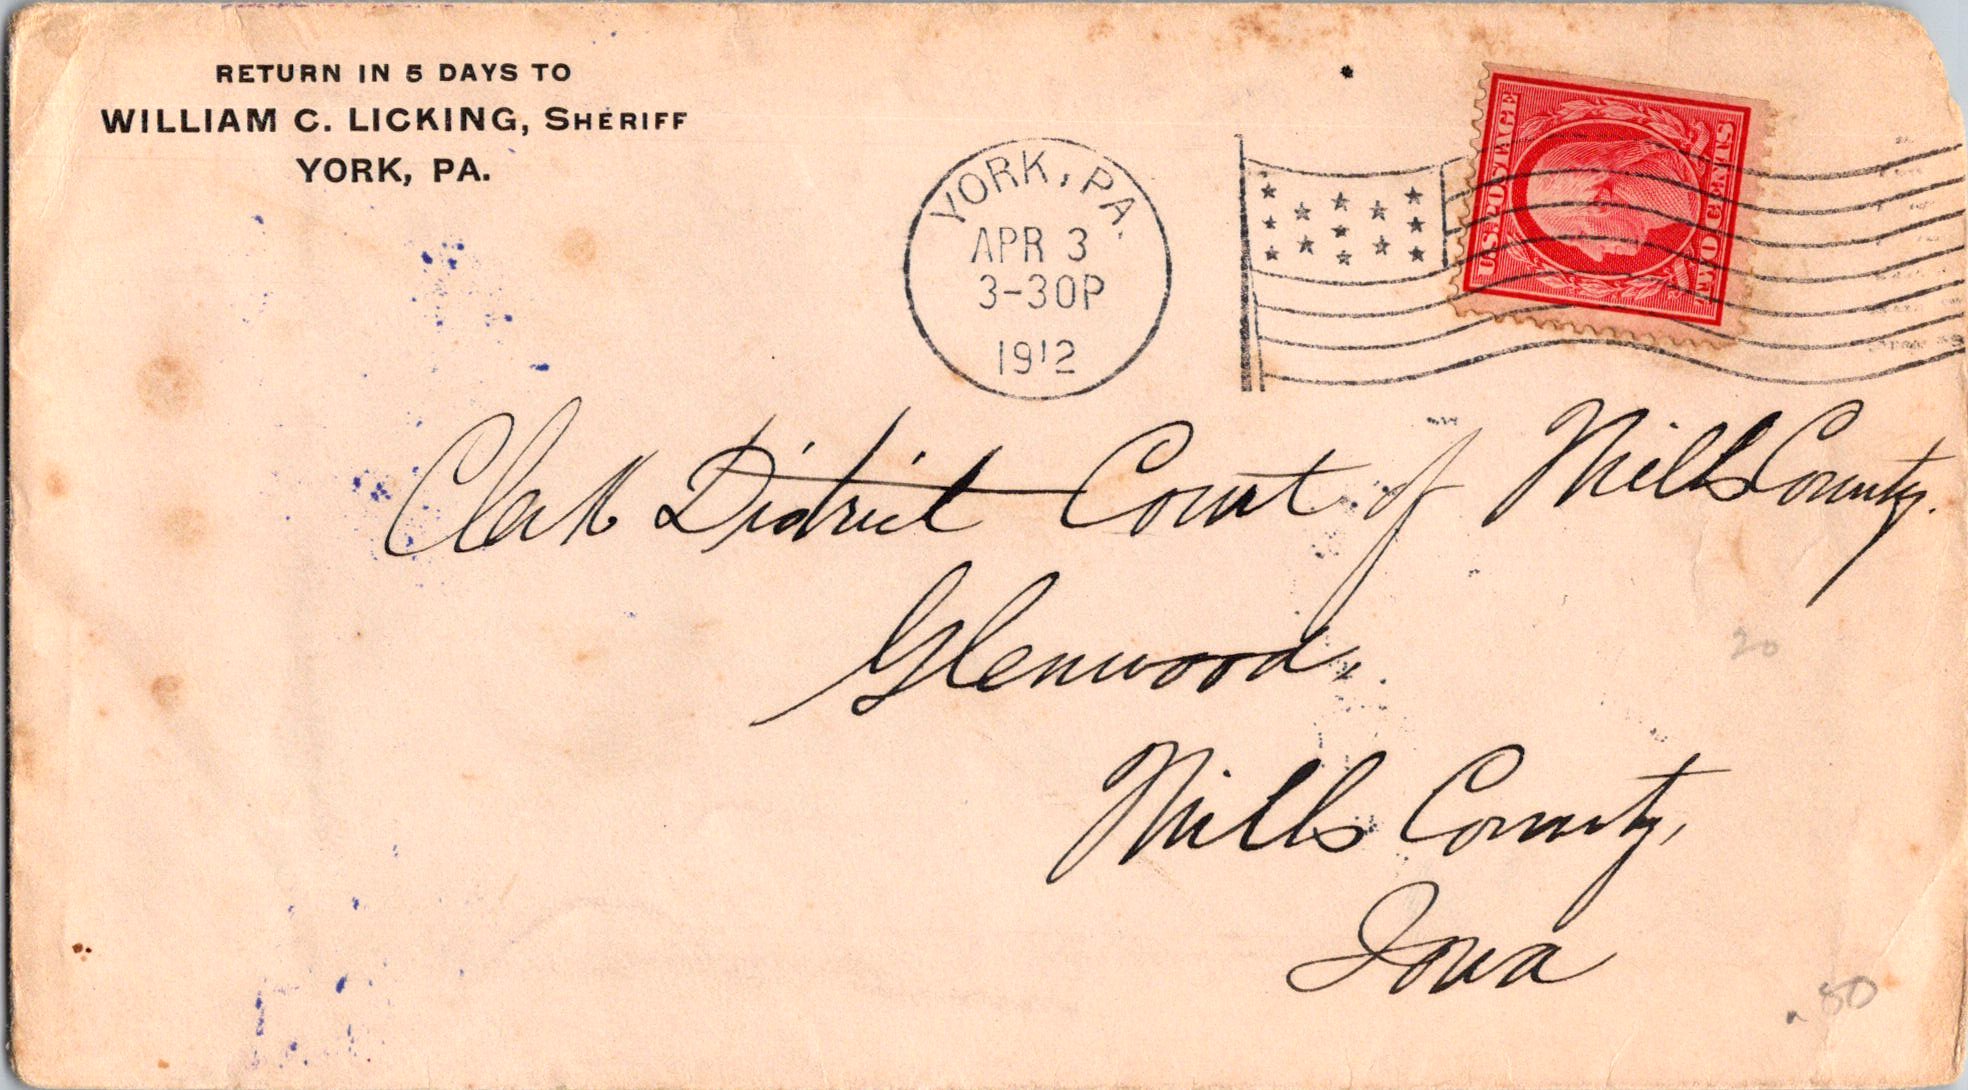 RETURN IN 5 DAYS TO
WILLIAM C. LICKING, SHERIFF
YORK, PA.
YORK, PA.
APR 3
3-30P
1912
U.S. POSTAGE
TWO CENTS
Clerk District Court of Mills County.
Glenwood,
Mills County,
Iowa
20
.80